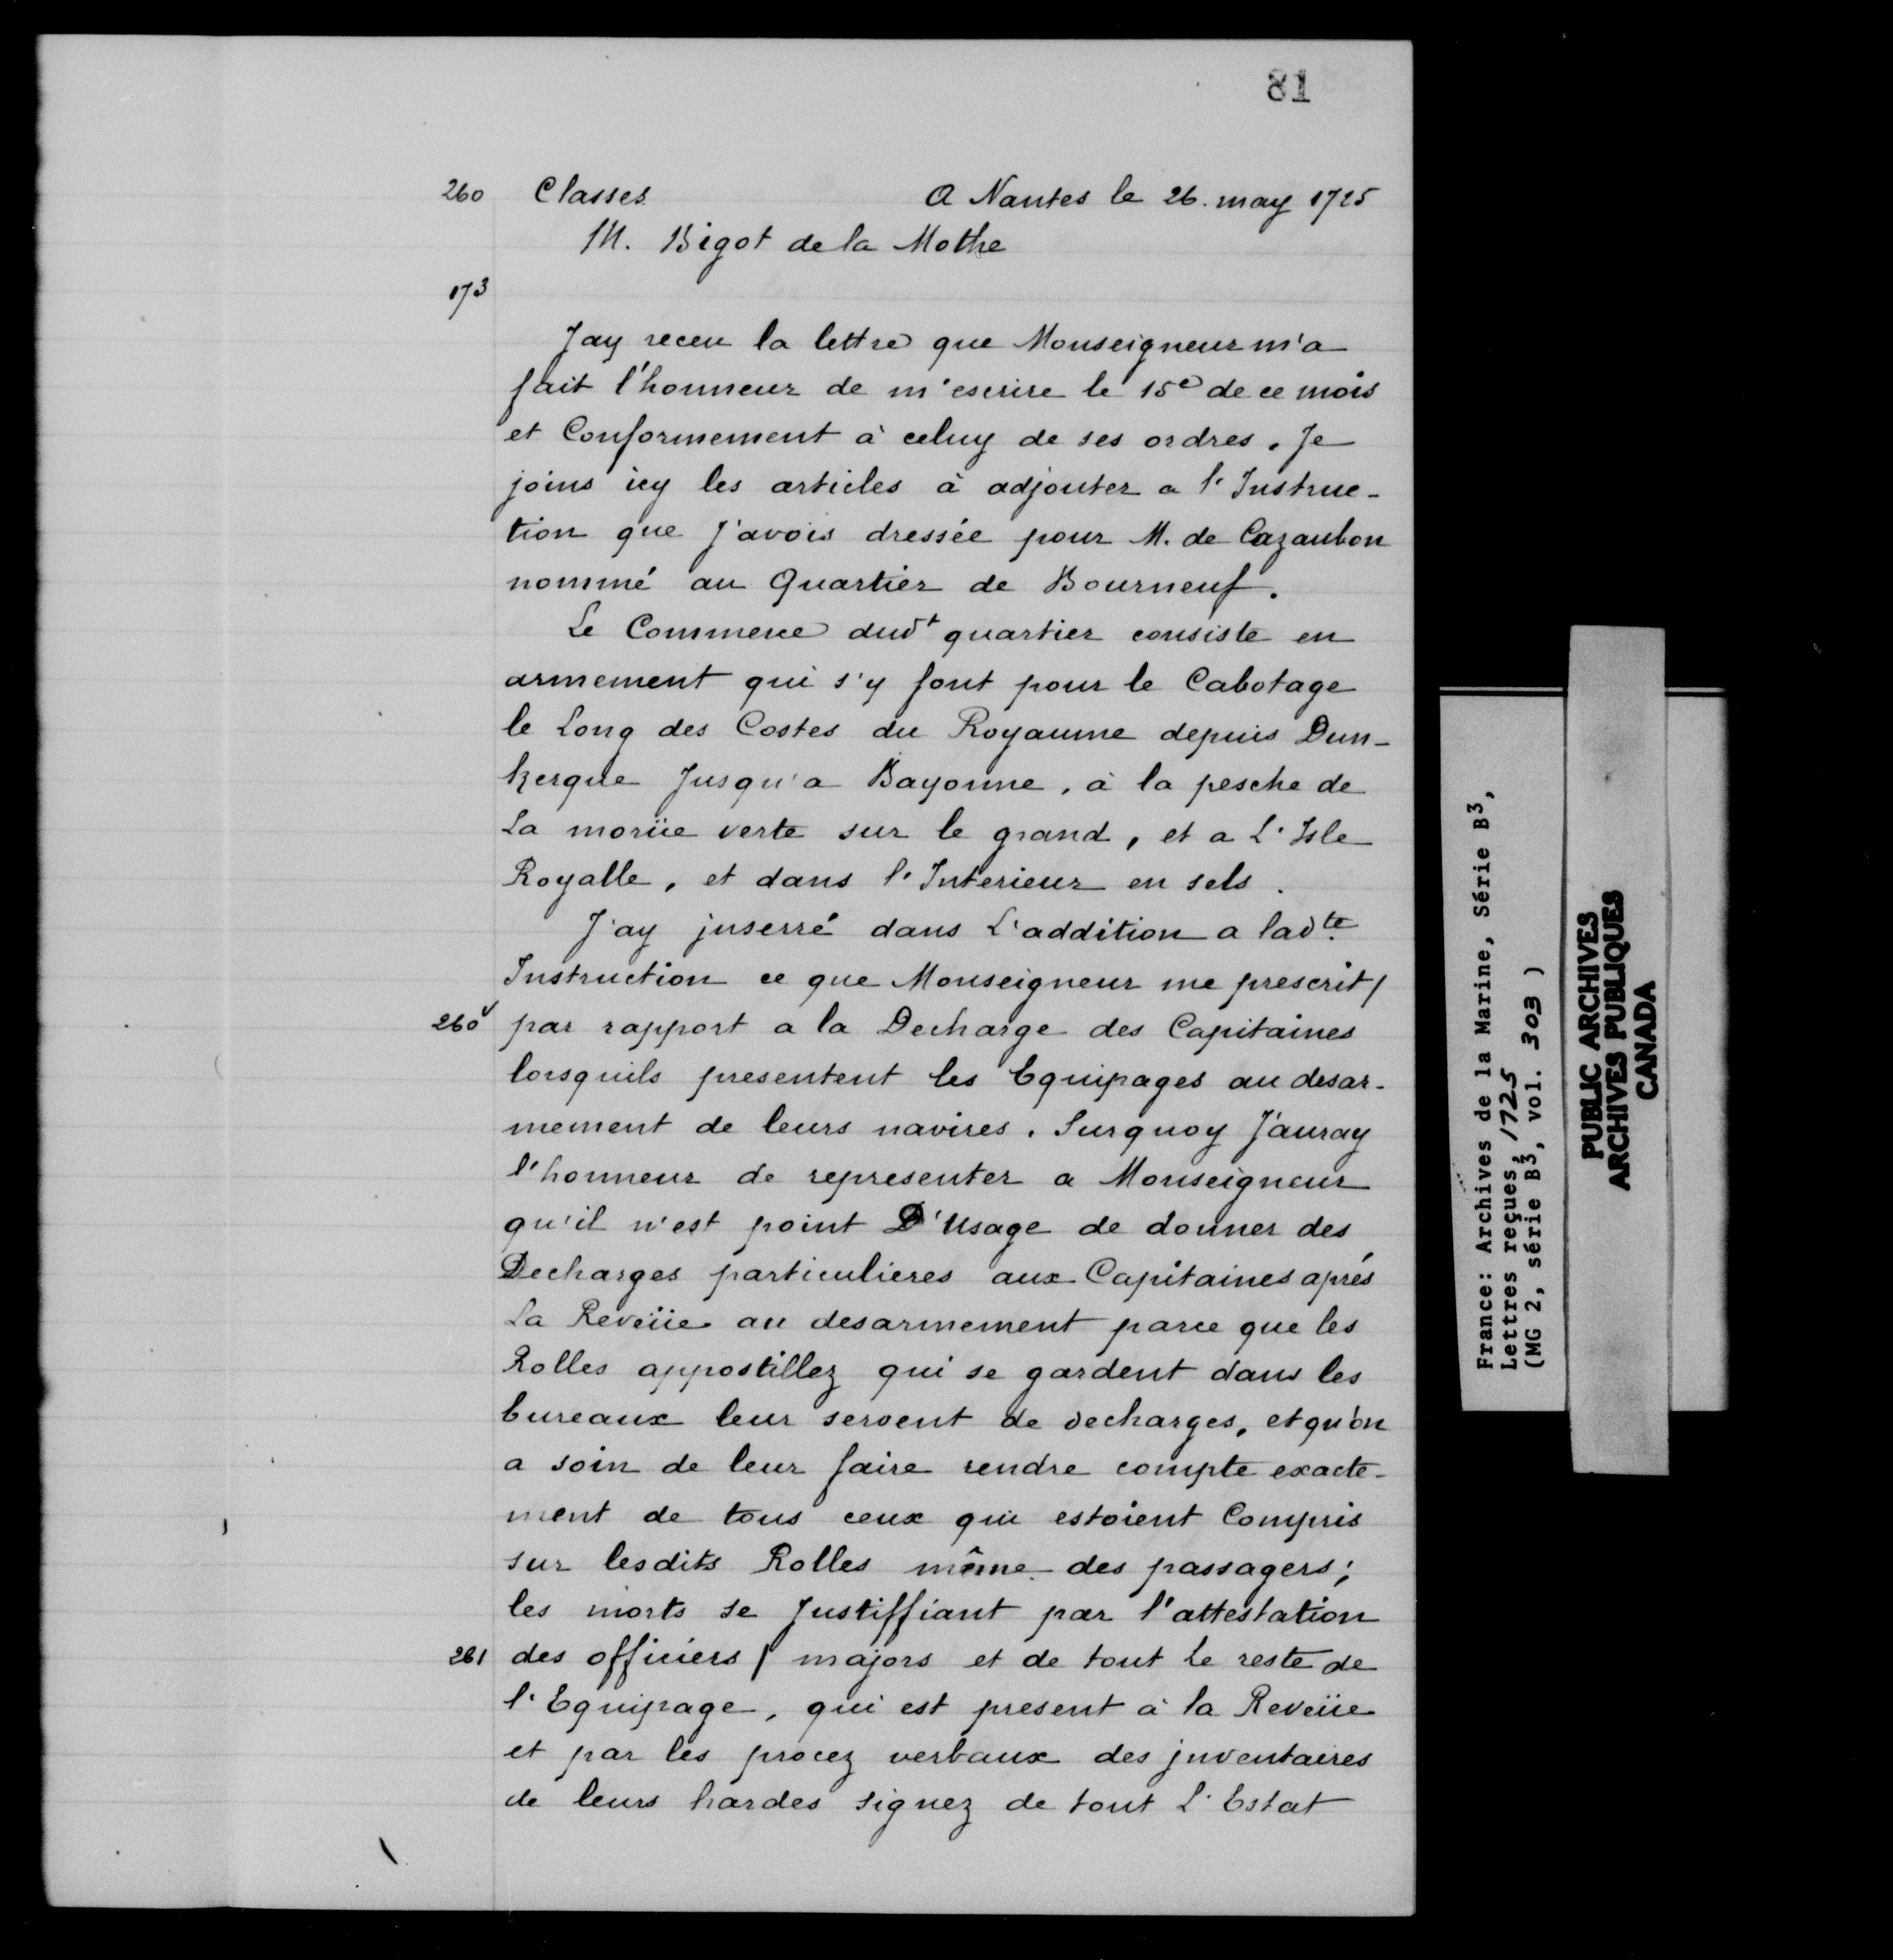 81
260 Classes A Nantes le 26. may 1725
M. Bigot de la Mothe
173
Jay receu la lettre que Monseigneur m'a
fait l'honneur de m'escrire le 15e de ce mois
et Conformement à celuy de ses ordres. Je
joins icy les articles à adjouter a l'Instruc-
tion que j'avois dressée pour M. de Cazaubon
nommé au Quartier de Bourneuf.
Le Commerce dudt quartier consiste en
armement qui s'y font pour le Cabotage
le Long des Costes du Royaume depuis Dun-
kerque Jusqu'a Bayonne, à la pesche de
La moriie verte sur le grand, et a L'Isle
Royalle, et dans l'Interieur en sels.
J'ay jnserré dans L'addition a ladte
Instruction ce que Monseigneur me prescrit/
260v par rapport a la Decharge des Capitaines
lorsquils presentent les Equipages au desar-
mement de leurs navires. Surquoy J'auray
l'honneur de representer a Monseigneur
qu'il n'est point D'Usage de donner des
Decharges particulieres aux Capitaines aprés
La Reveüe au desarmement parce que les
Rolles appostillez qui se gardent dans les
bureaux leur servent de decharges, et qu'on
a soin de leur faire rendre compte exacte-
ment de tous ceux qui estoient Compris
sur lesdits Rolles même des passagers;
les morts se Justiffiant par l'attestation
261 des officiers / majors et de tout Le reste de
l'Equipage, qui est present à la Reveüe
et par les procez verbaux des jnventaires
de leurs hardes signez de tout L'Estat
France: Archives de la Marine, Série B3,
Lettres reçues, 1725
(MG 2, série B3, vol. 303)
PUBLIC ARCHIVES
ARCHIVES PUBLIQUES
CANADA